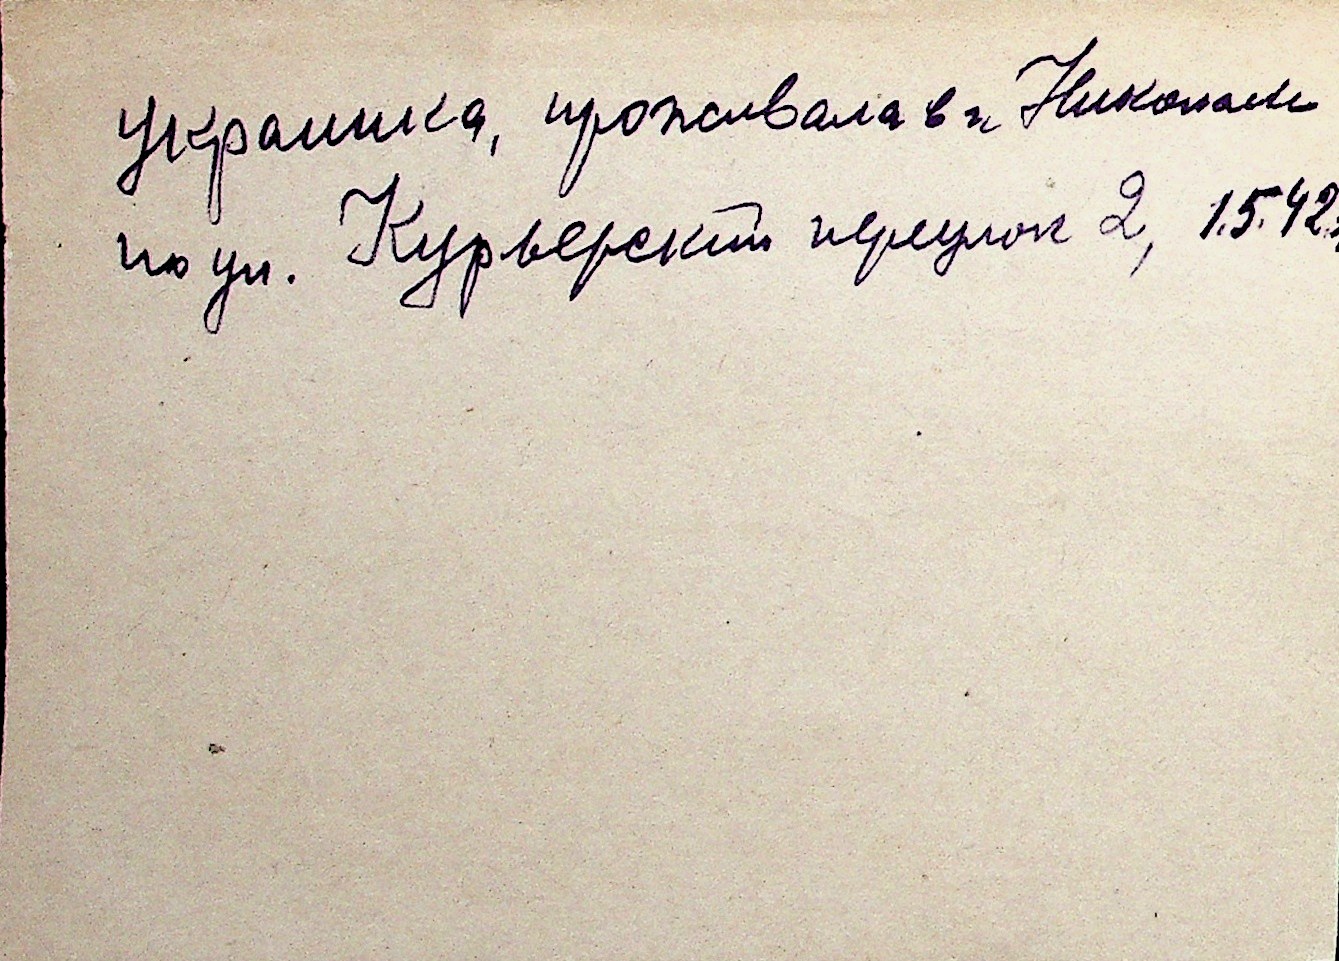 украинка, проживала в г. Никополе
по ул. Курьерский переулок 2, 1.5.42.